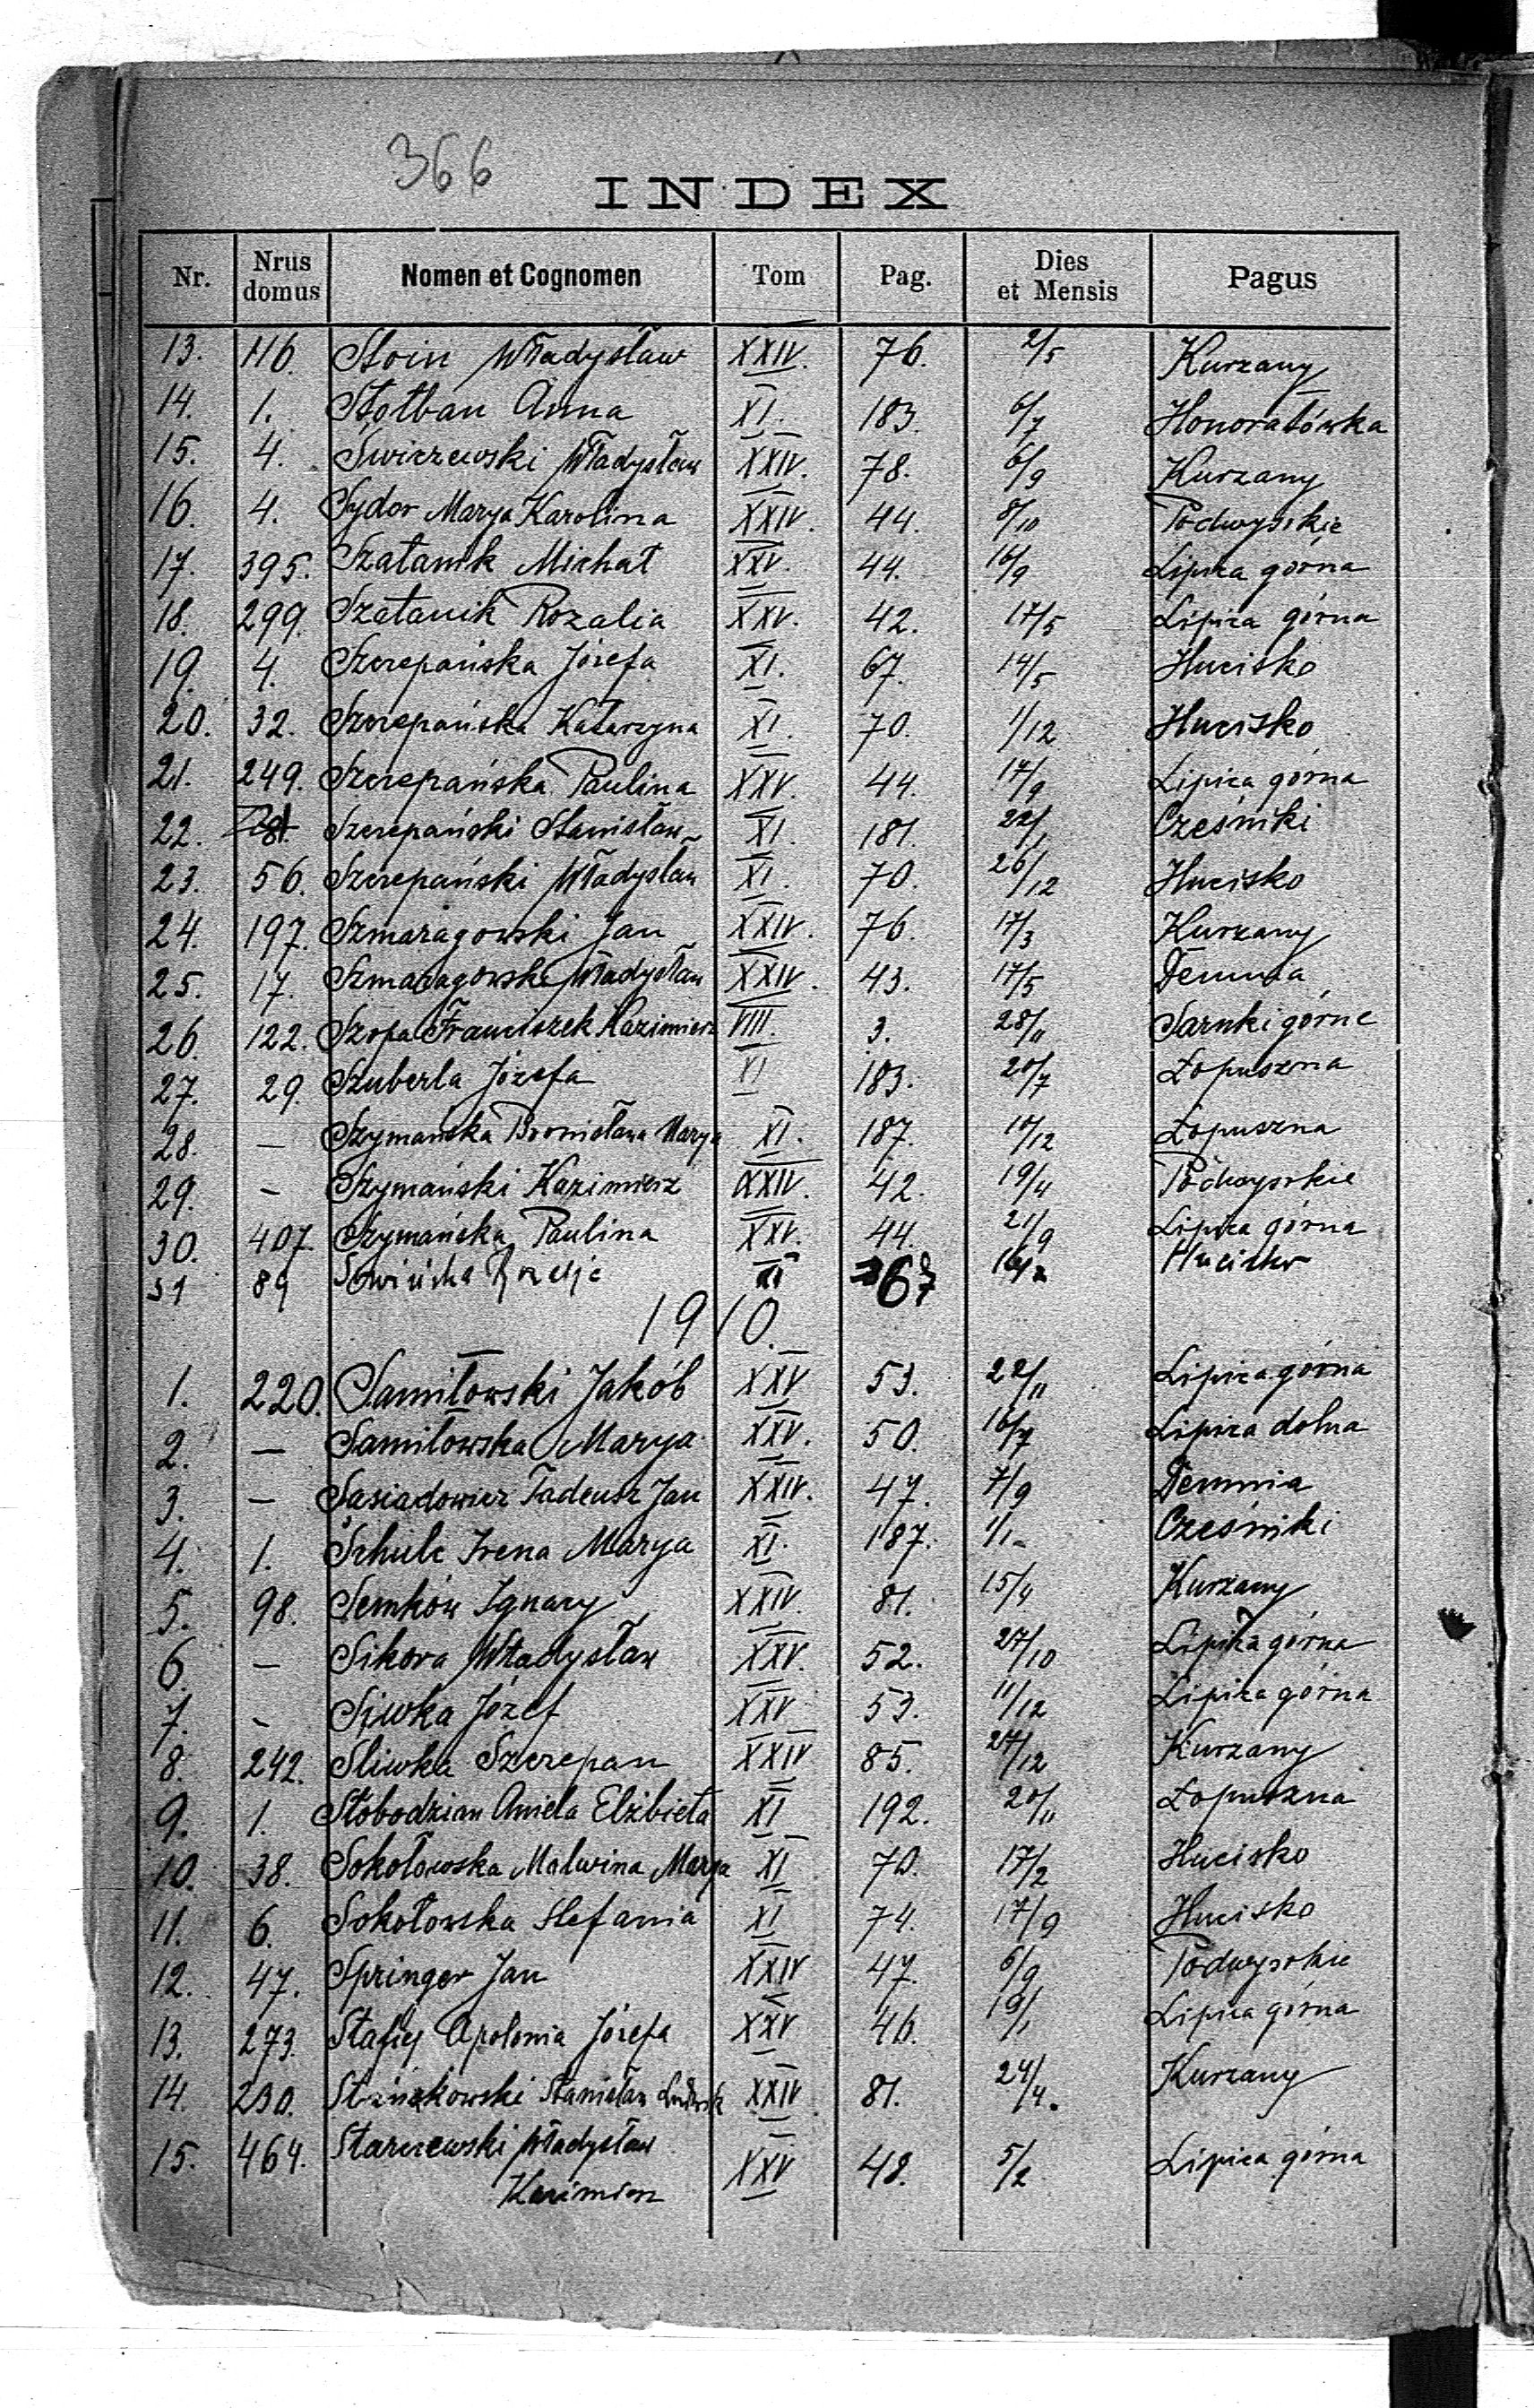 366
INDEX
Nr. Nrus domus Nomen et Cognomen Tom Pag. Dies et Mensis Pagus
13. 116. Stoin Władysław XXIV. 76. 2/5 Kurzany
14. 1. Stołban Anna XI. 183. 6/7 Honoratówka
15. 4. Świrzewski Władysław XXIV. 78. 6/9 Kurzany
16. 4. Sydor Marya Karolina XXIV. 44. 8/10 Podwysokie
17. 395. Szatanik Michał XXV. 44. 16/9 Lipica górna
18. 299. Szatanik Rozalia XXV. 42. 17/5 Lipica górna
19. 4. Szczepańska Józefa XI. 67. 14/5 Hucisko
20. 32. Szczepańska Katarzyna XI. 70. 1/12 Hucisko
21. 249. Szczepańska Paulina XXV. 44. 17/9 Lipica górna
22. Szczepański Stanisław XI. 181. 22/1 Cześniki
23. 56. Szczepański Władysław XI. 70. 26/12 Hucisko
24. 197. Szmaragowski Jan XXIV. 76. 17/3 Kurzany
25. 17. Szmaragowski Władysław XXIV. 43. 17/5 Demnia
26. 122. Szopa Franciszek Kazimierz VIII. 3. 28/11 Sarnki górne
27. 29. Szuberla Józefa XI 183. 20/7 Łopuszna
28. — Szymańska Bronisława Marya XI. 187. 10/12 Łopuszna
29. — Szymański Kazimierz XXIV. 42. 19/4 Podwysokie
30. 407. Szymańska Paulina XXV. 44. 21/9 Lipica górna
31 89 XI 67 Hucisko
1910.
1. 220. Samiłowski Jakób XXV 53. 22/11 Lipica górna
2. — Samiłowska Marya XXV. 50. 16/7 Lipica dolna
3. — Sąsiadowicz Tadeusz Jan XXIV. 47. 7/9 Demnia
4. 1. Schulc Irena Marya XI. 187. 1/1 Cześniki
5. 98. Semków Ignacy XXIV. 81. 15/4 Kurzany
6. — Sikora Władysław XXV. 52. 27/10 Lipica górna
7. - Siwka Józef XXV 53. 11/12 Lipica górna
8. 242. Sliwka Szczepan XXIV 85. 27/12 Kurzany
9. 1. Słobodzian Aniela Elżbieta XI 192. 20/11 Łopuszna
10. 38. Sokołowska Malwina Marya XI 70. 17/2 Hucisko
11. 6. Sokołowska Stefania XI 74. 17/9 Hucisko
12. 47. Springer Jan XXIV 47. 6/9 Podwysokie
13. 273. Stafiej Apolonia Józefa XXV 46. 19/1 Lipica górna
14. 230. Stanisław Ludwik XXIV 81. 24/4. Kurzany
15. 464. Starczewski Władysław XXV 48. 5/2 Lipica górna
Kazimierz